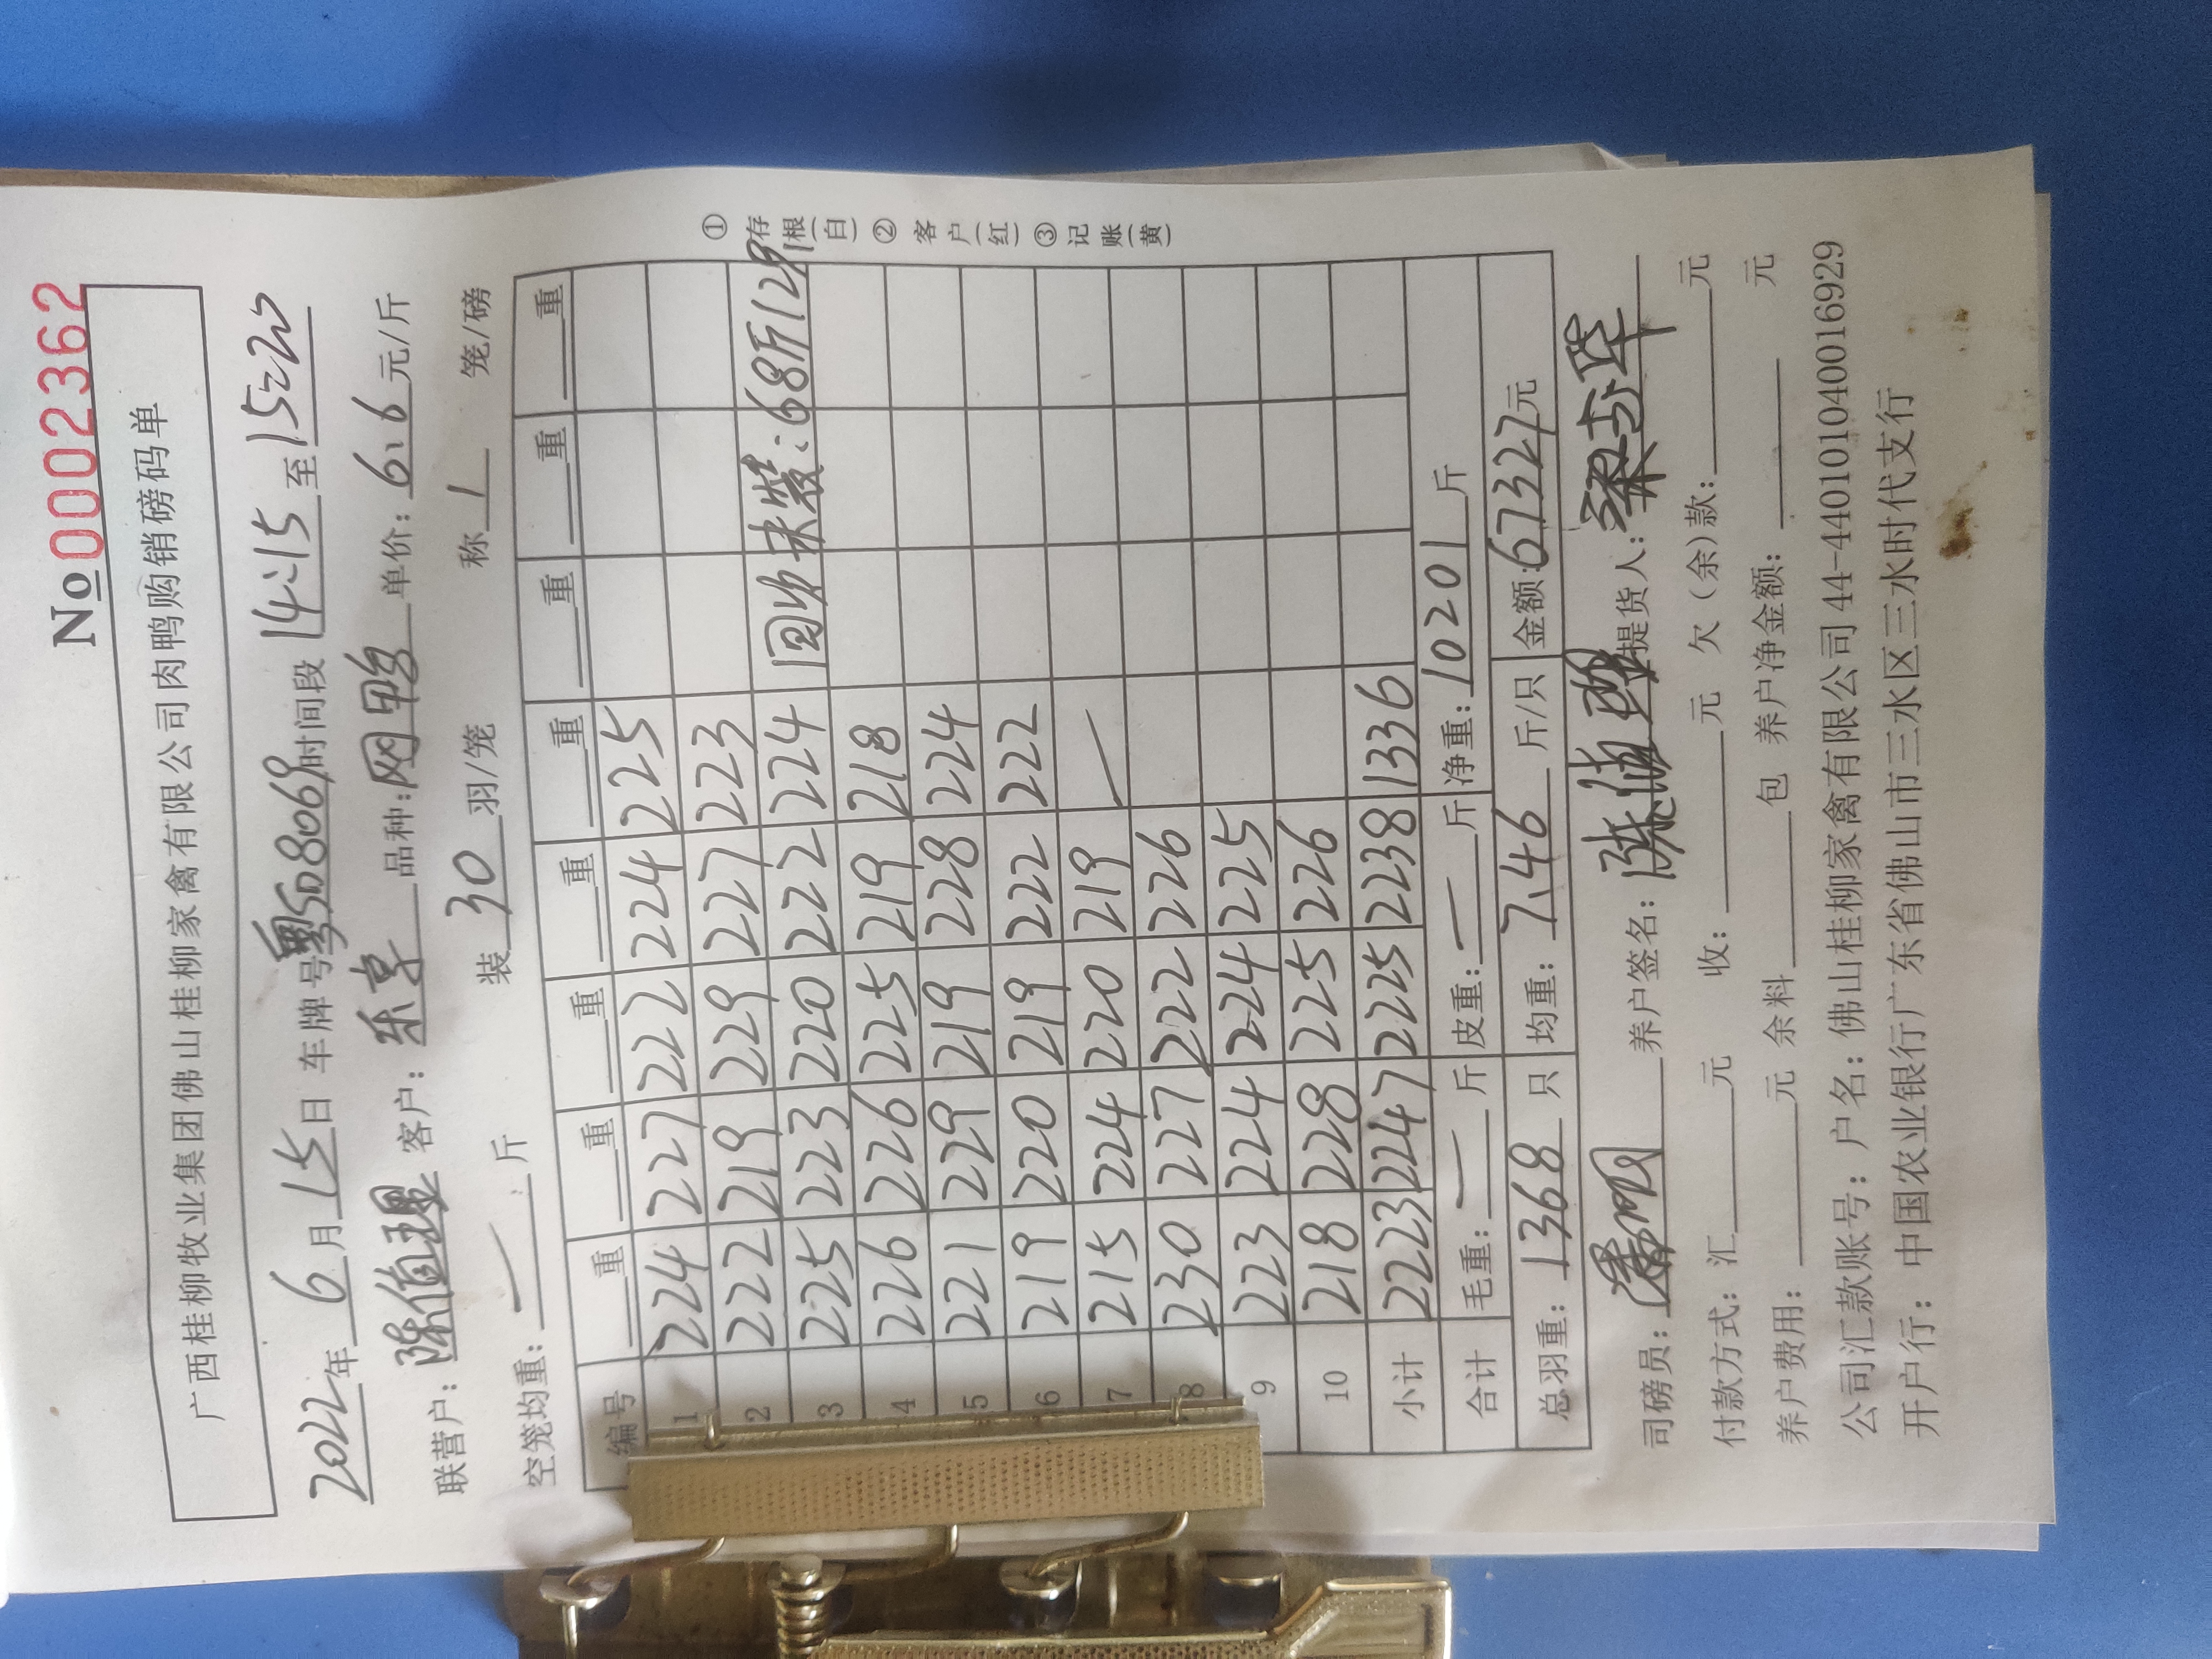 No 0002362
广西桂柳牧业集团佛山桂柳家禽有限公司肉鸭购销磅码单
2022年 6月 15日 车牌号粤SD8069时间段 14:15 至 15:20
联营户: 陈值理 客户: 乐享 品种: 网鸭 单价: 6.6 元/斤
空笼均重: — 斤 装 30 羽/笼 称 1 笼/磅
编号 重 重 重 重 重 重 重 重
1 224 227 222 224 225
2 222 219 229 227 223
3 225 223 220 222 224 回收未装:68斤12只
4 226 226 225 219 218
5 221 229 219 228 224
6 219 220 219 222 222
7 215 224 220 219 /
8 230 227 222 226
9 223 224 224 225
10 218 228 225 226
小计 2223 2247 2225 2238 1336
合计 毛重: — 斤 皮重: — 斤 净重: 10201 斤
总羽重: 1368 只 均重: 7.46 斤/只 金额: 67327元
司磅员: 养户签名: 提货人:
付款方式: 汇 元 收: 元 欠(余)款: 元
养户费用: 元 余料 包 养户净金额: 元
公司汇款账号: 户名: 佛山桂柳家禽有限公司 44-440101040016929
开户行: 中国农业银行广东省佛山市三水区三水时代支行
①存根(白)②客户(红)③记账(黄)